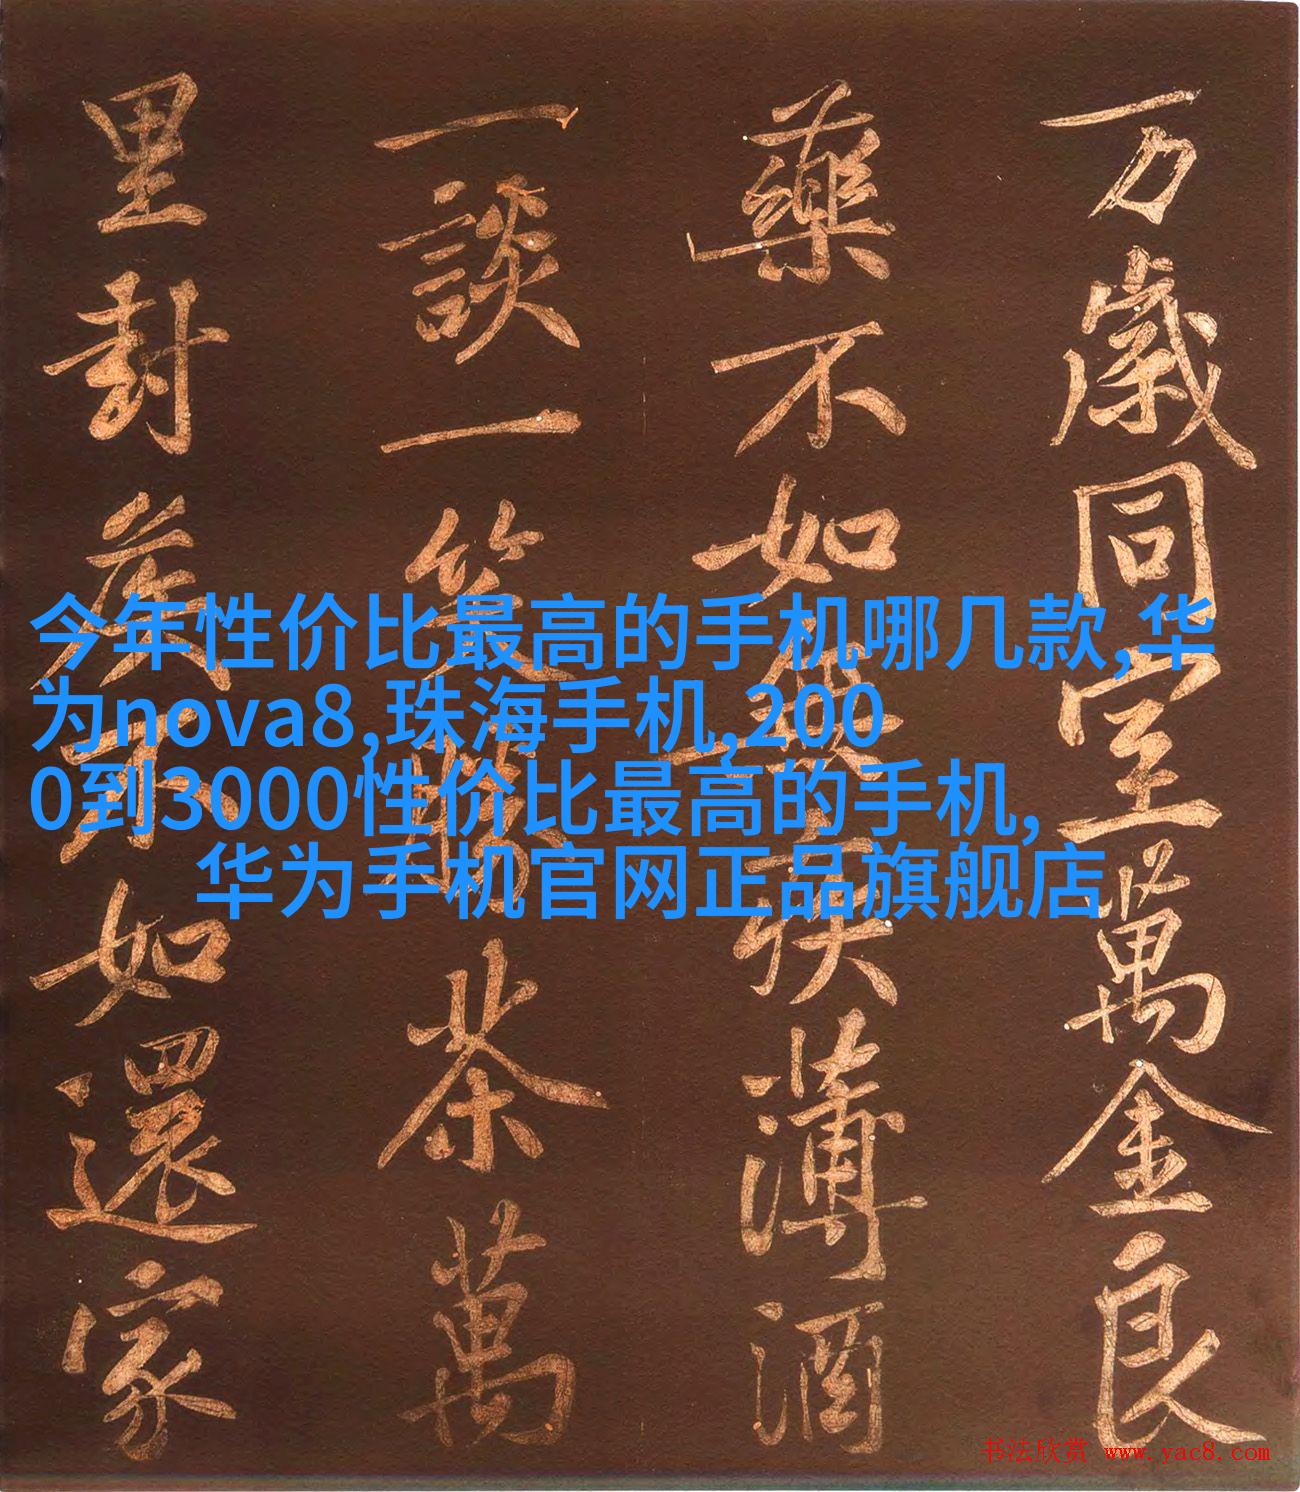 万歲同室萬金良
藥不如無疾薄酒
一談一笑勝茶萬
里封矦不如還家
今年性价比最高的手机哪几款,华
为nova8,珠海手机,200
0到3000性价比最高的手机,
华为手机官网正品旗舰店
书法欣赏 www.yac8.com